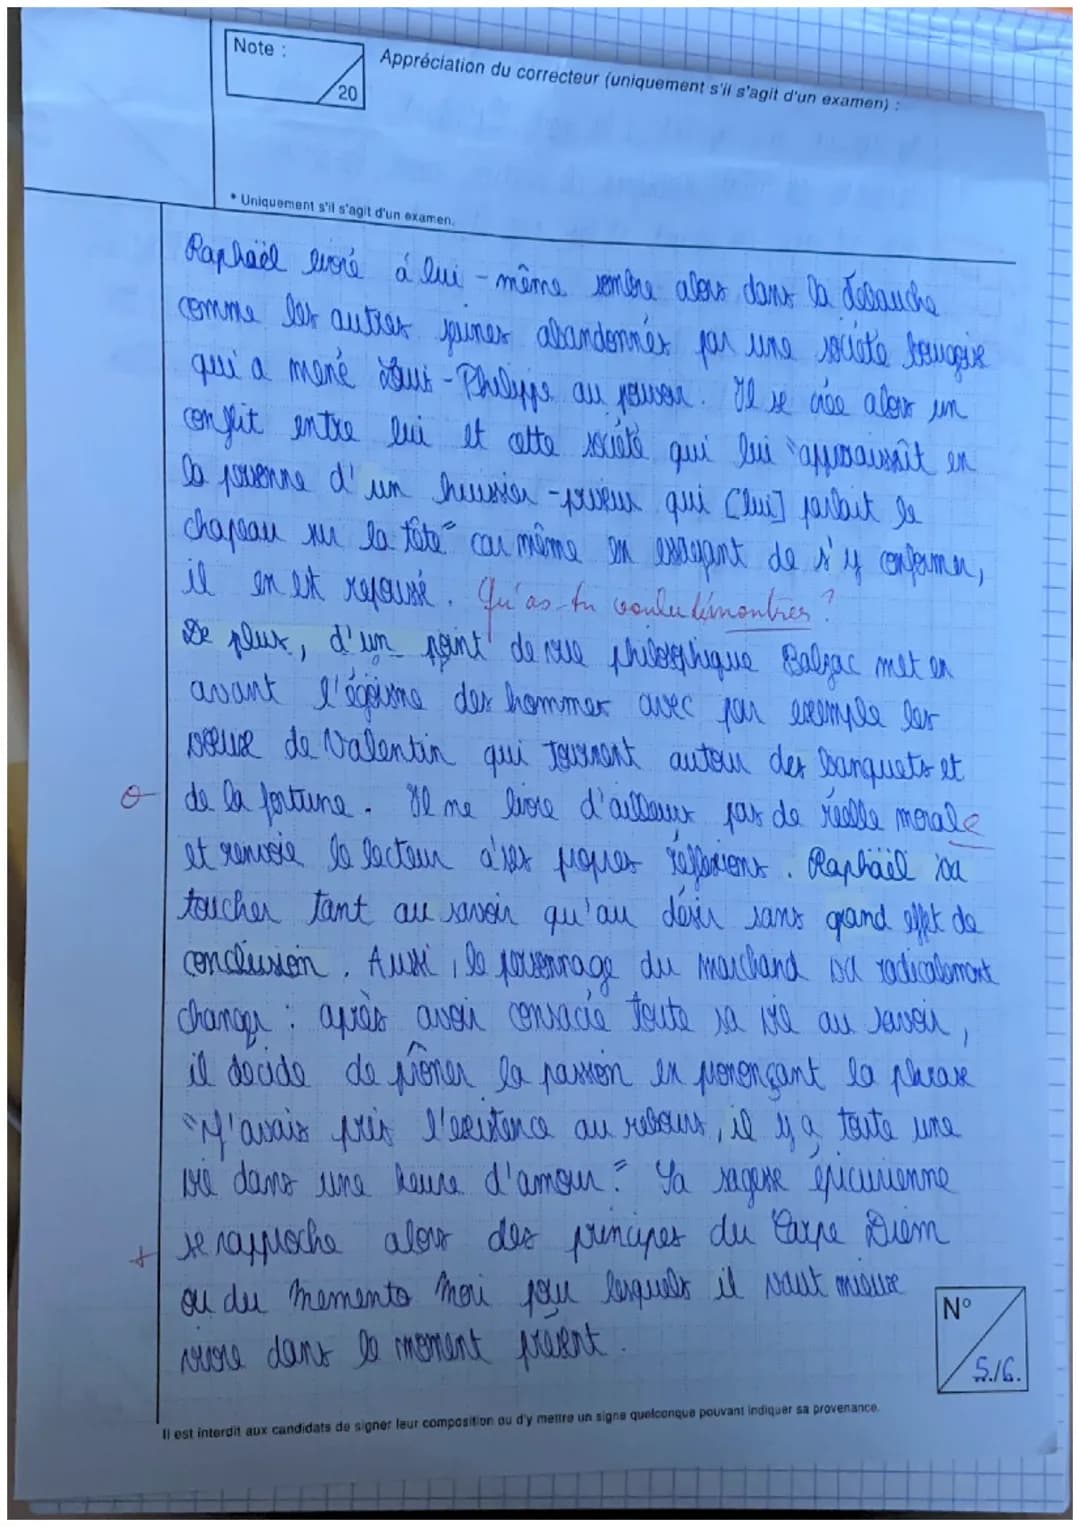 Note :
/20
Appréciation du correcteur (uniquement s'il s'agit d'un examen) :
* Uniquement s'il s'agit d'un examen.
Raphaël livré à lui-même sombre alors dans la débauche
comme les autres jeunes abandonnés par une société bourgoise
qui a mené Louis-Philippe au pouvoir. Il se crée alors un
conflit entre lui et cette société qui lui "apparaissait en
la personne d'un huissier-priseur qui [lui] parlait le
chapeau sur la tête" car même en essayant de s'y conformer,
il en est repoussé. Qu'as-tu voulu démontrer ?
De plus, d'un point de vue philosophique Balzac met en
avant l'égoïsme des hommes avec par exemple les
voeux de Valentin qui tournent autour des banquets et
de la fortune. Il ne livre d'ailleurs pas de réelle morale
et renvoie le lecteur à ses propres réflexions. Raphaël va
toucher tant au savoir qu'au désir sans grand effet de
conclusion. Aussi, le personnage du marchand va radicalement
changer : après avoir consacré toute sa vie au savoir,
il décide de prôner la passion en prononçant la phrase
"J'avais pris l'existence au rebours, il y a toute une
vie dans une heure d'amour". Sa sagesse épicurienne
+ se rapproche alors des principes du Carpe Diem
ou du Memento Mori pour lesquels il vaut mieux
vivre dans le moment présent.
N°
5./6.
Il est interdit aux candidats de signer leur composition ou d'y mettre un signe quelconque pouvant indiquer sa provenance.